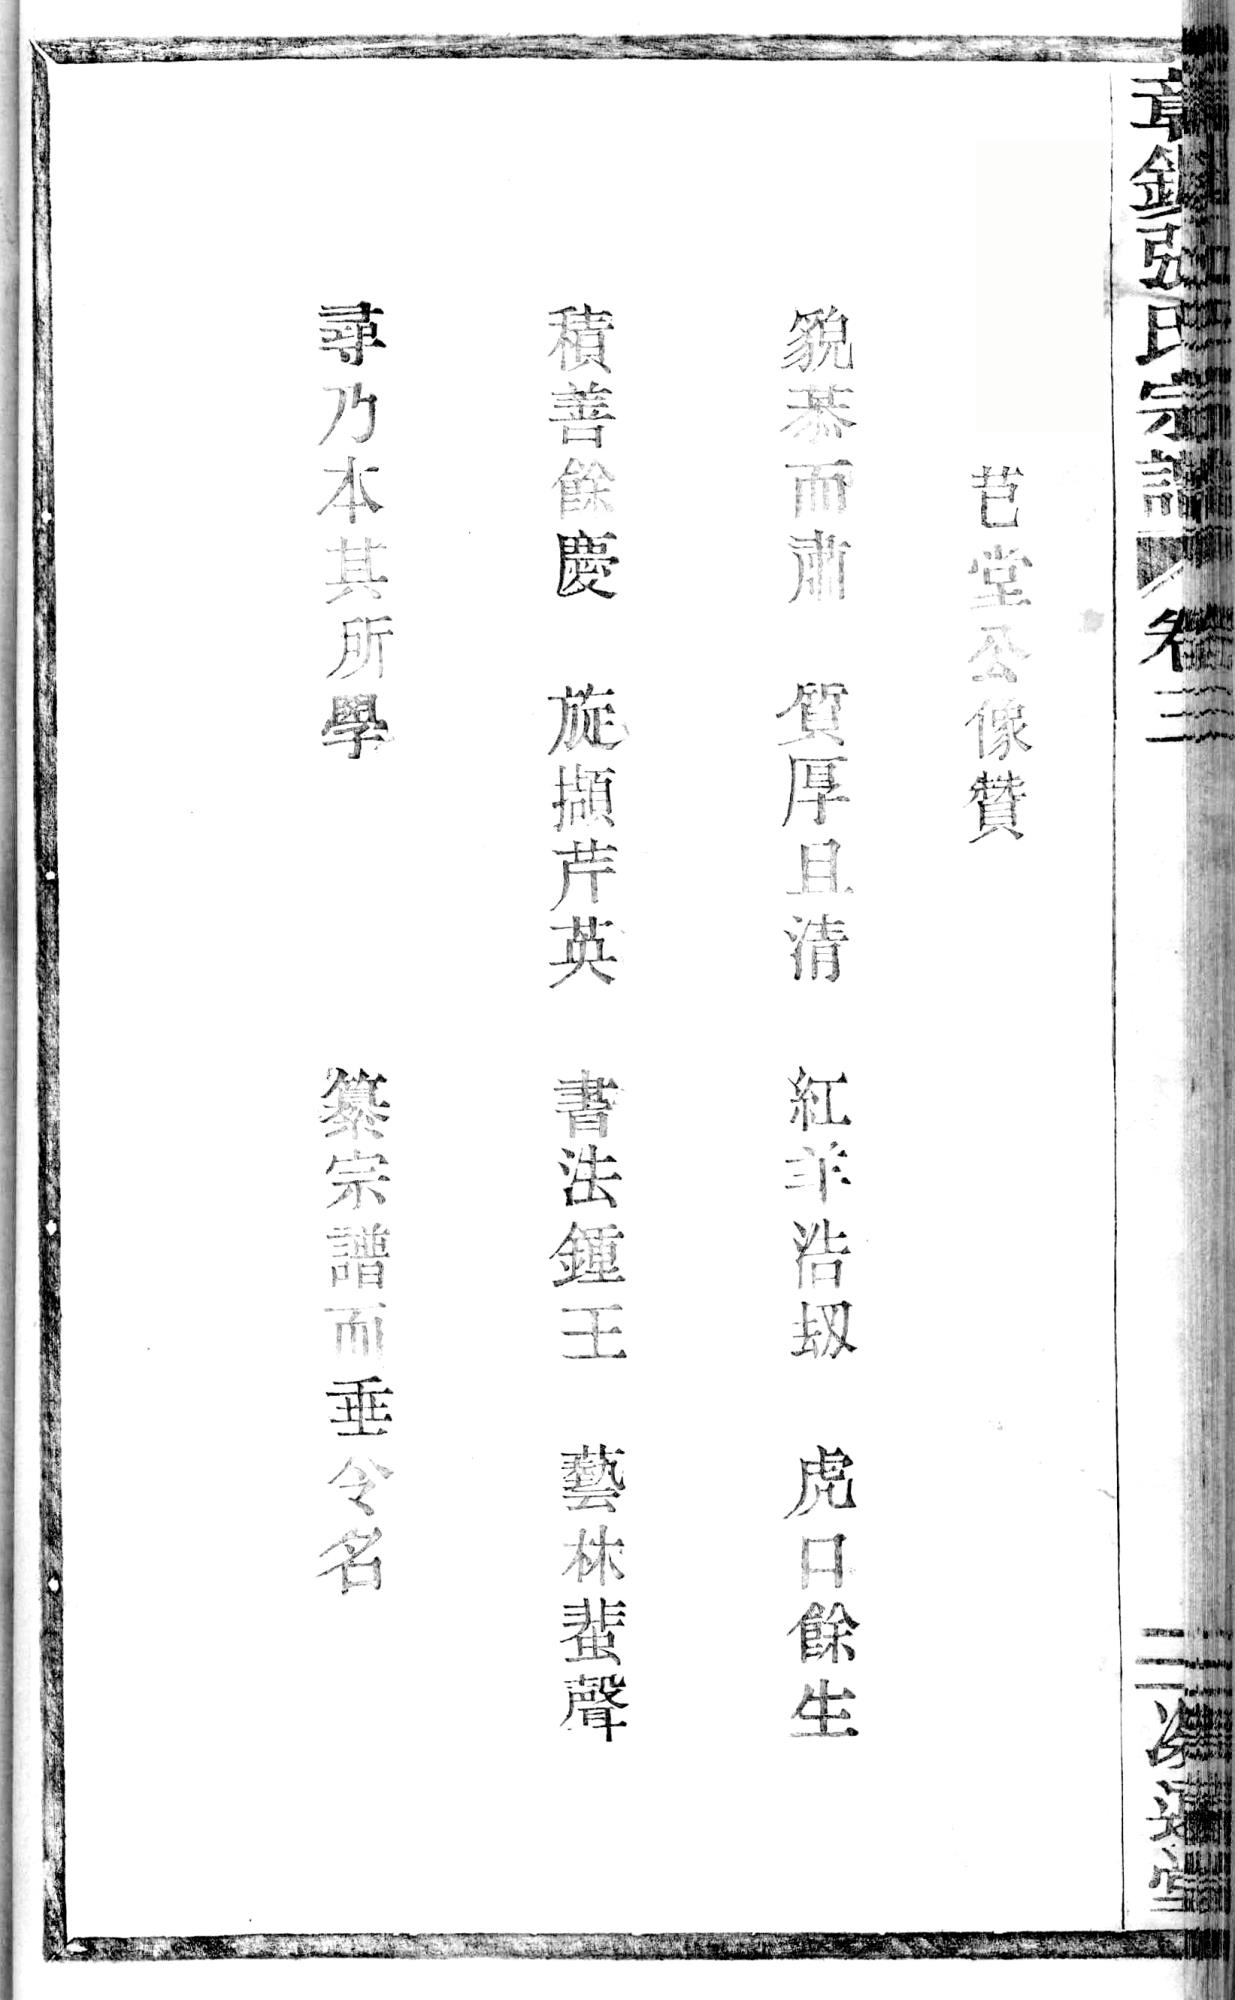 張氏宗譜 卷三 三
芑堂公像贊
貌恭而肅 質厚且清 紅羊浩刼 虎口餘生
積善餘慶 旋擷芹英 書法鍾王 藝林蜚聲
尋乃本其所學 纂宗譜而垂令名